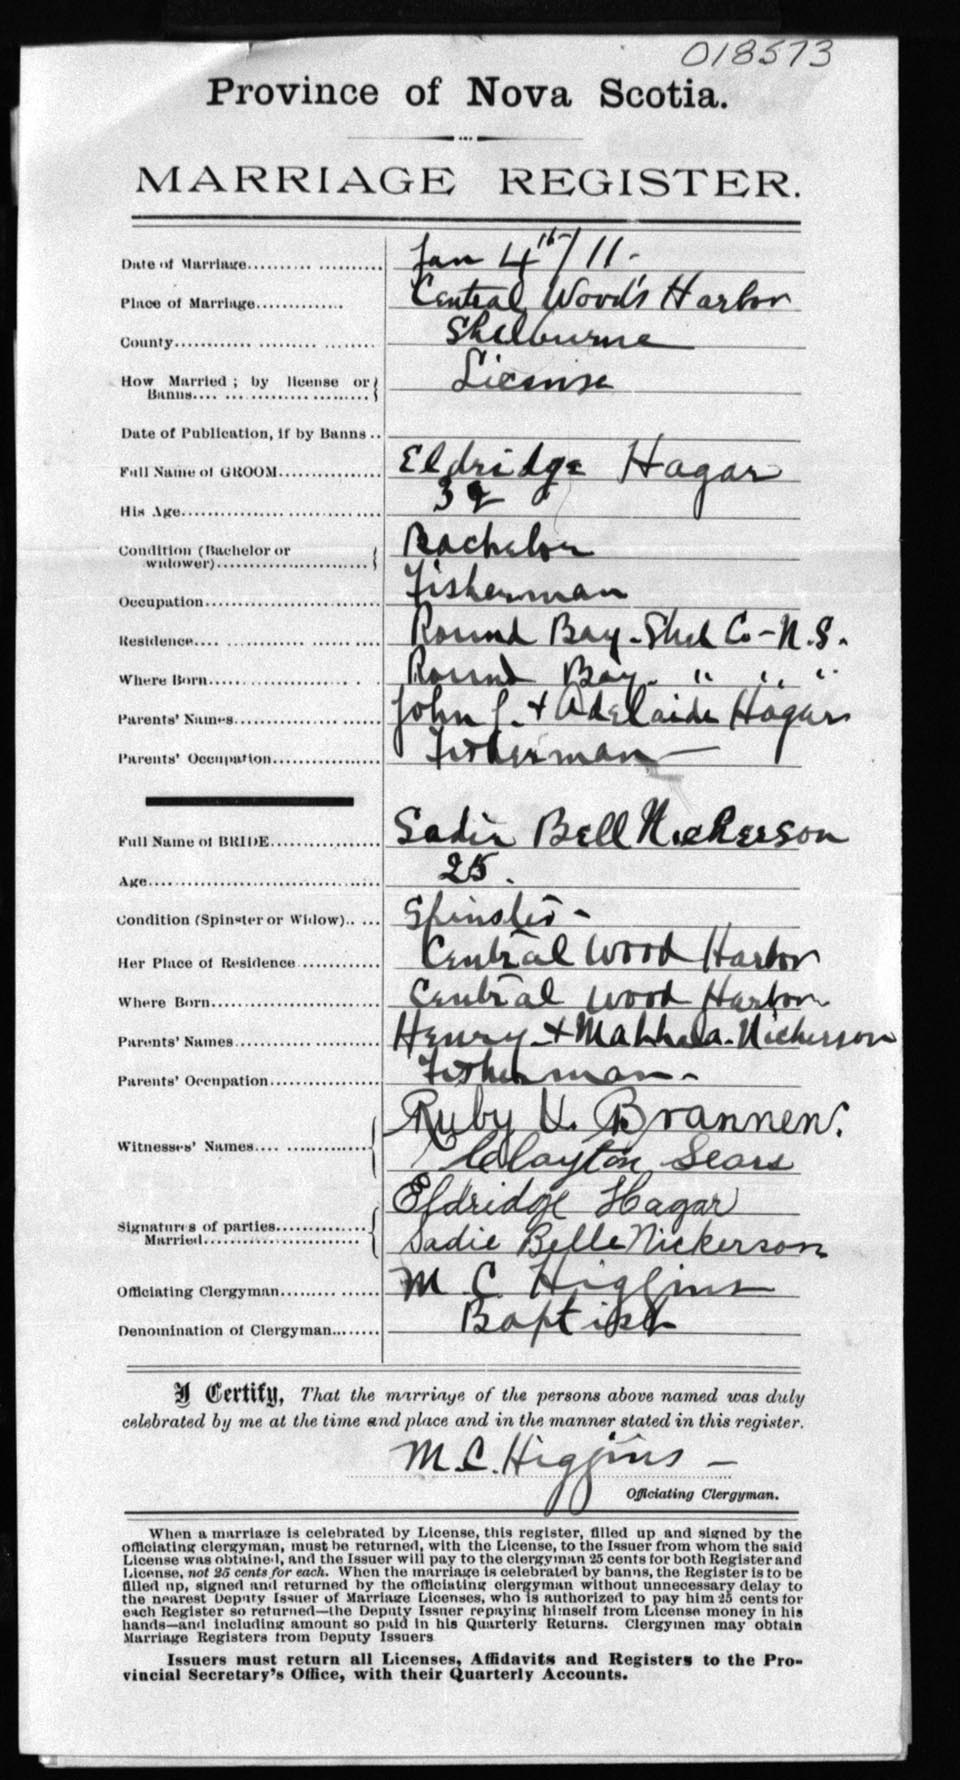 018573
Province of Nova Scotia.
MARRIAGE REGISTER.
Date of Marriage Jan 4th/11-
Place of Marriage Central Wood's Harbor
County Shelburne
How Married; by license or Banns License
Date of Publication, if by Banns
Full Name of GROOM Eldridge Hagar
His Age 32
Condition (Bachelor or widower) Bachelor
Occupation Fisherman
Residence Round Bay - Shel Co - N.S.
Where Born Round Bay. " " "
Parents' Names John J. + Adelaide Hagar
Parents' Occupation Fisherman
Full Name of BRIDE Sadie Bell Nickerson
Age 25.
Condition (Spinster or Widow) Spinster -
Her Place of Residence Central Wood Harbor
Where Born Central Wood Harbor
Parents' Names Henry + Nickerson
Parents' Occupation Fisherman -
Witnesses' Names Ruby V. Brannen.
Clayton Sears
Signatures of parties Married Eldridge Hagar
Sadie Belle Nickerson
Officiating Clergyman M C Higgins
Denomination of Clergyman Baptist
I Certify, That the marriage of the persons above named was duly
celebrated by me at the time and place and in the manner stated in this register.
M. C. Higgins -
Officiating Clergyman.
When a marriage is celebrated by License, this register, filled up and signed by the
officiating clergyman, must be returned, with the License, to the Issuer from whom the said
License was obtained, and the Issuer will pay to the clergyman 25 cents for both Register and
License, not 25 cents for each. When the marriage is celebrated by banns, the Register is to be
filled up, signed and returned by the officiating clergyman without unnecessary delay to
the nearest Deputy Issuer of Marriage Licenses, who is authorized to pay him 25 cents for
each Register so returned—the Deputy Issuer repaying himself from License money in his
hands—and including amount so paid in his Quarterly Returns. Clergymen may obtain
Marriage Registers from Deputy Issuers
Issuers must return all Licenses, Affidavits and Registers to the Pro-
vincial Secretary's Office, with their Quarterly Accounts.